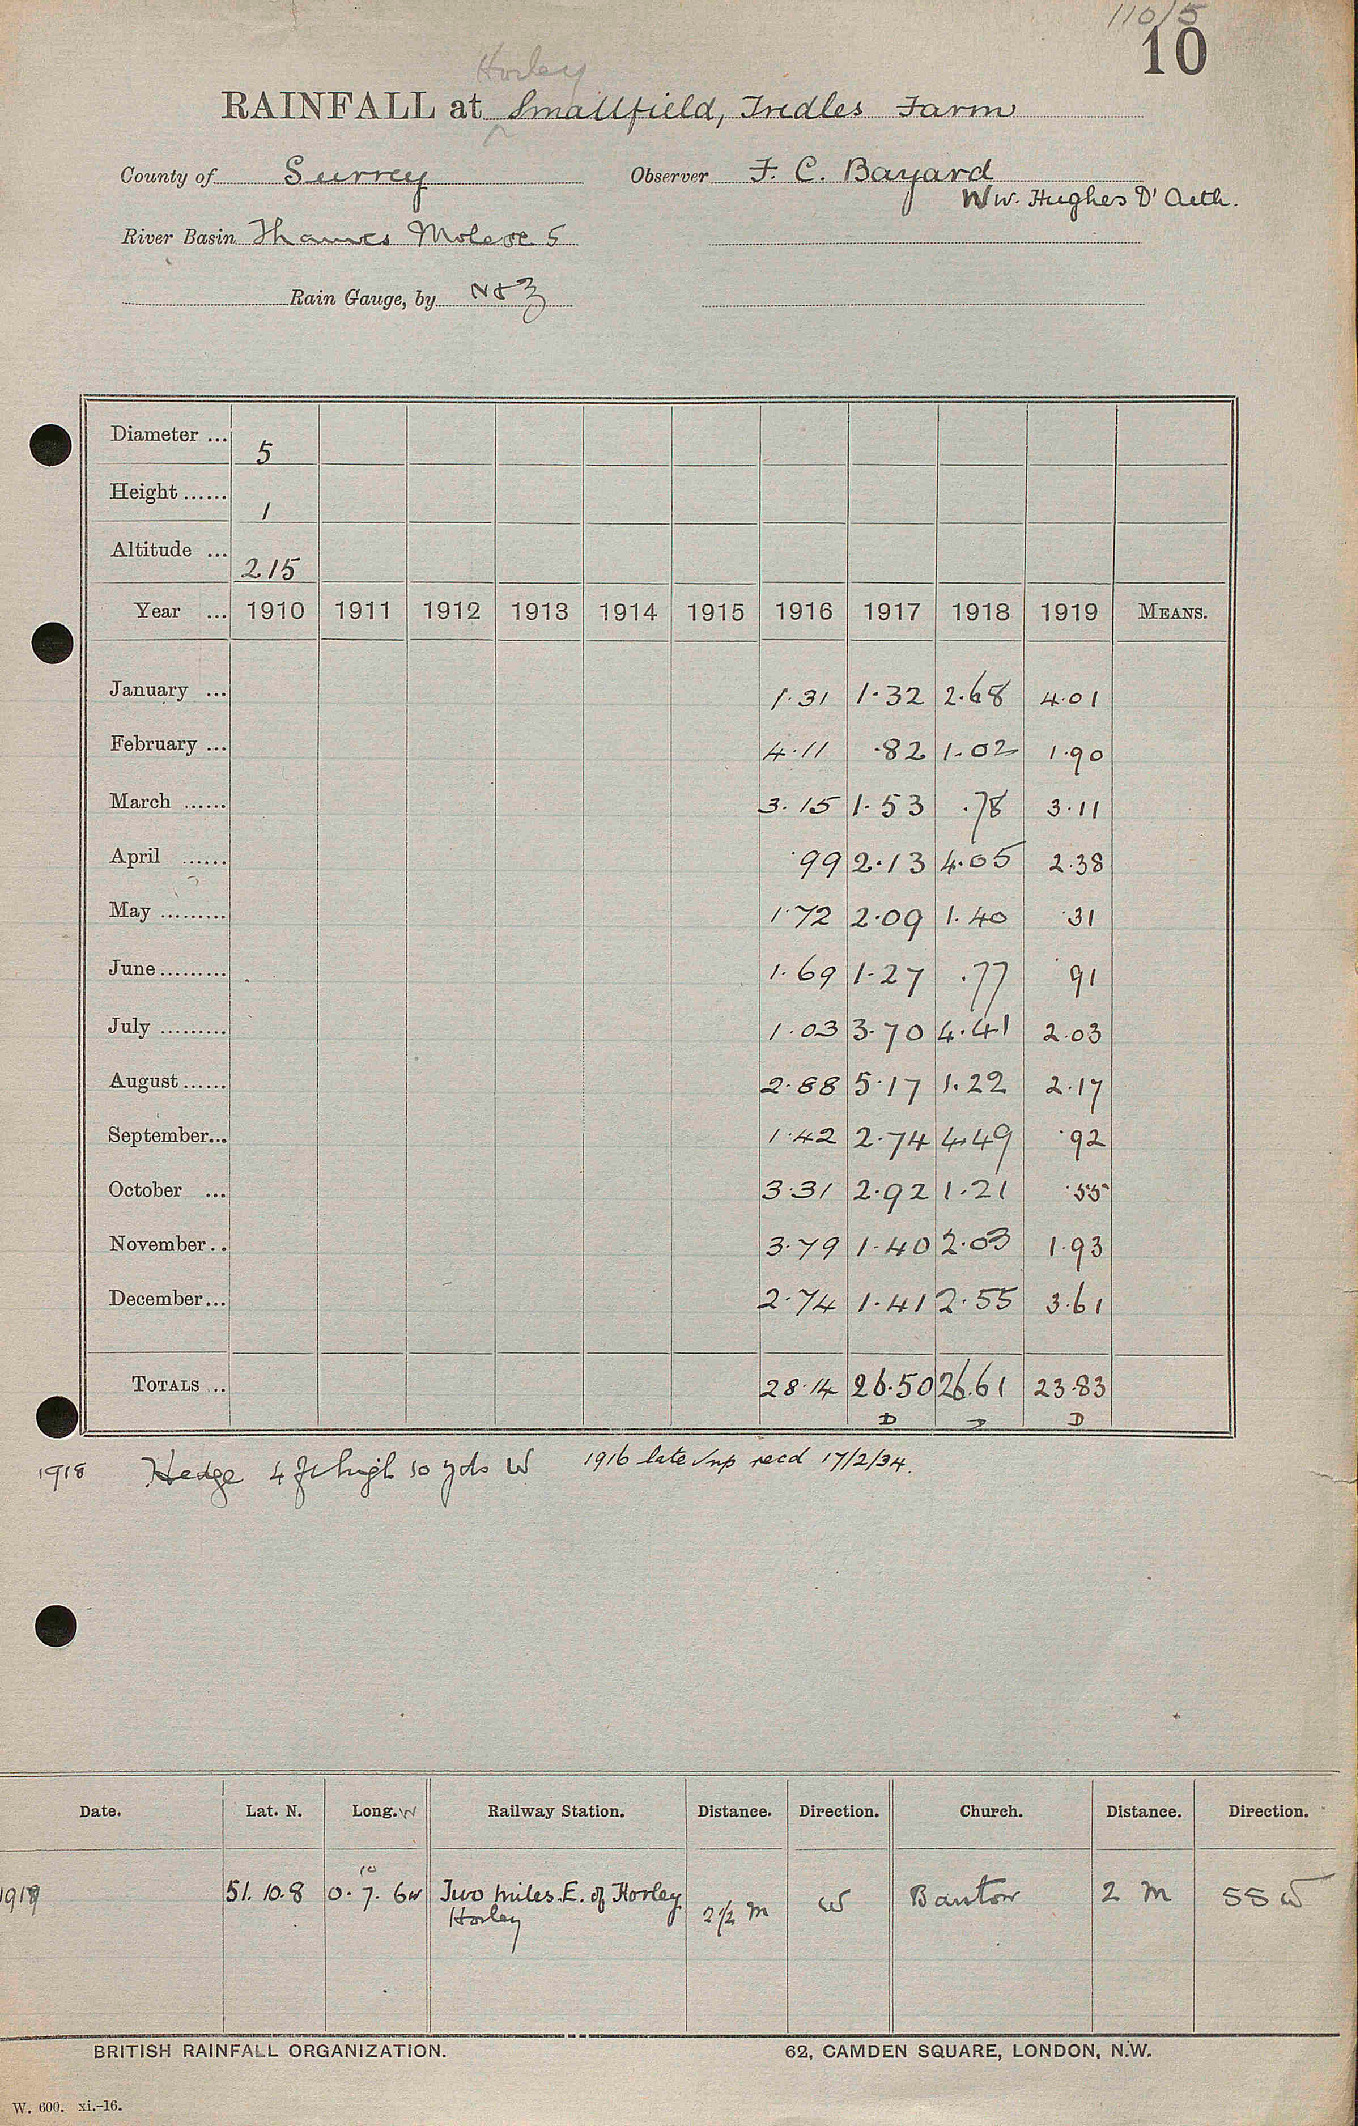 110/5
10
Horley
RAINFALL at Smallfield, Tredles Farm
County of Surrey Observer F. C. Bayard
W.W. Hughes D'Aeth.
River Basin Thames Mole 5
Rain Gauge, by N & Z
Diameter ... 5
Height ...... 1
Altitude ... 215
Year ... 1910 1911 1912 1913 1914 1915 1916 1917 1918 1919 MEANS.
January ... 1.31 1.32 2.68 4.01
February ... 4.11 .82 1.02 1.90
March ...... 3.15 1.53 .78 3.11
April ...... .99 2.13 4.05 2.38
May ......... 1.72 2.09 1.40 .31
June ......... 1.69 1.27 .77 .91
July ......... 1.03 3.70 4.41 2.03
August ...... 2.88 5.17 1.22 2.17
September... 1.42 2.74 4.49 .92
October ... 3.31 2.92 1.21 .55
November .. 3.79 1.40 2.03 1.93
December... 2.74 1.41 2.55 3.61
TOTALS ... 28.14 26.50 26.61 23.83
D D D
1918 Hedge 4 ft high 10 yds W 1916 late Inp recd 17/2/34.
Date. Lat. N. Long. W Railway Station. Distance. Direction. Church. Distance. Direction.
10
1919 51. 10. 8 0. 7. 6 W Two miles E. of Horley 2½ m W 2 m SSW
Horley
BRITISH RAINFALL ORGANIZATION. 62, CAMDEN SQUARE, LONDON, N.W.
W. 600. xi.-16.